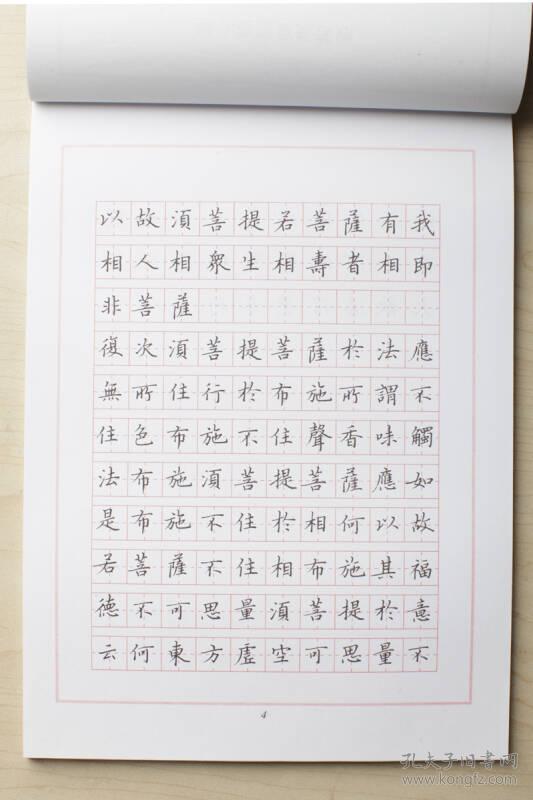 以故須菩提若菩薩有我
相人相衆生相壽者相即
非菩薩
復次須菩提菩薩於法應
無所住行於布施所謂不
住色布施不住聲香味觸
法布施須菩提菩薩應如
是布施不住於相何以故
若菩薩不住相布施其福
德不可思量須菩提於意
云何東方虛空可思量不
4
孔夫子旧书网
www.kongfz.com